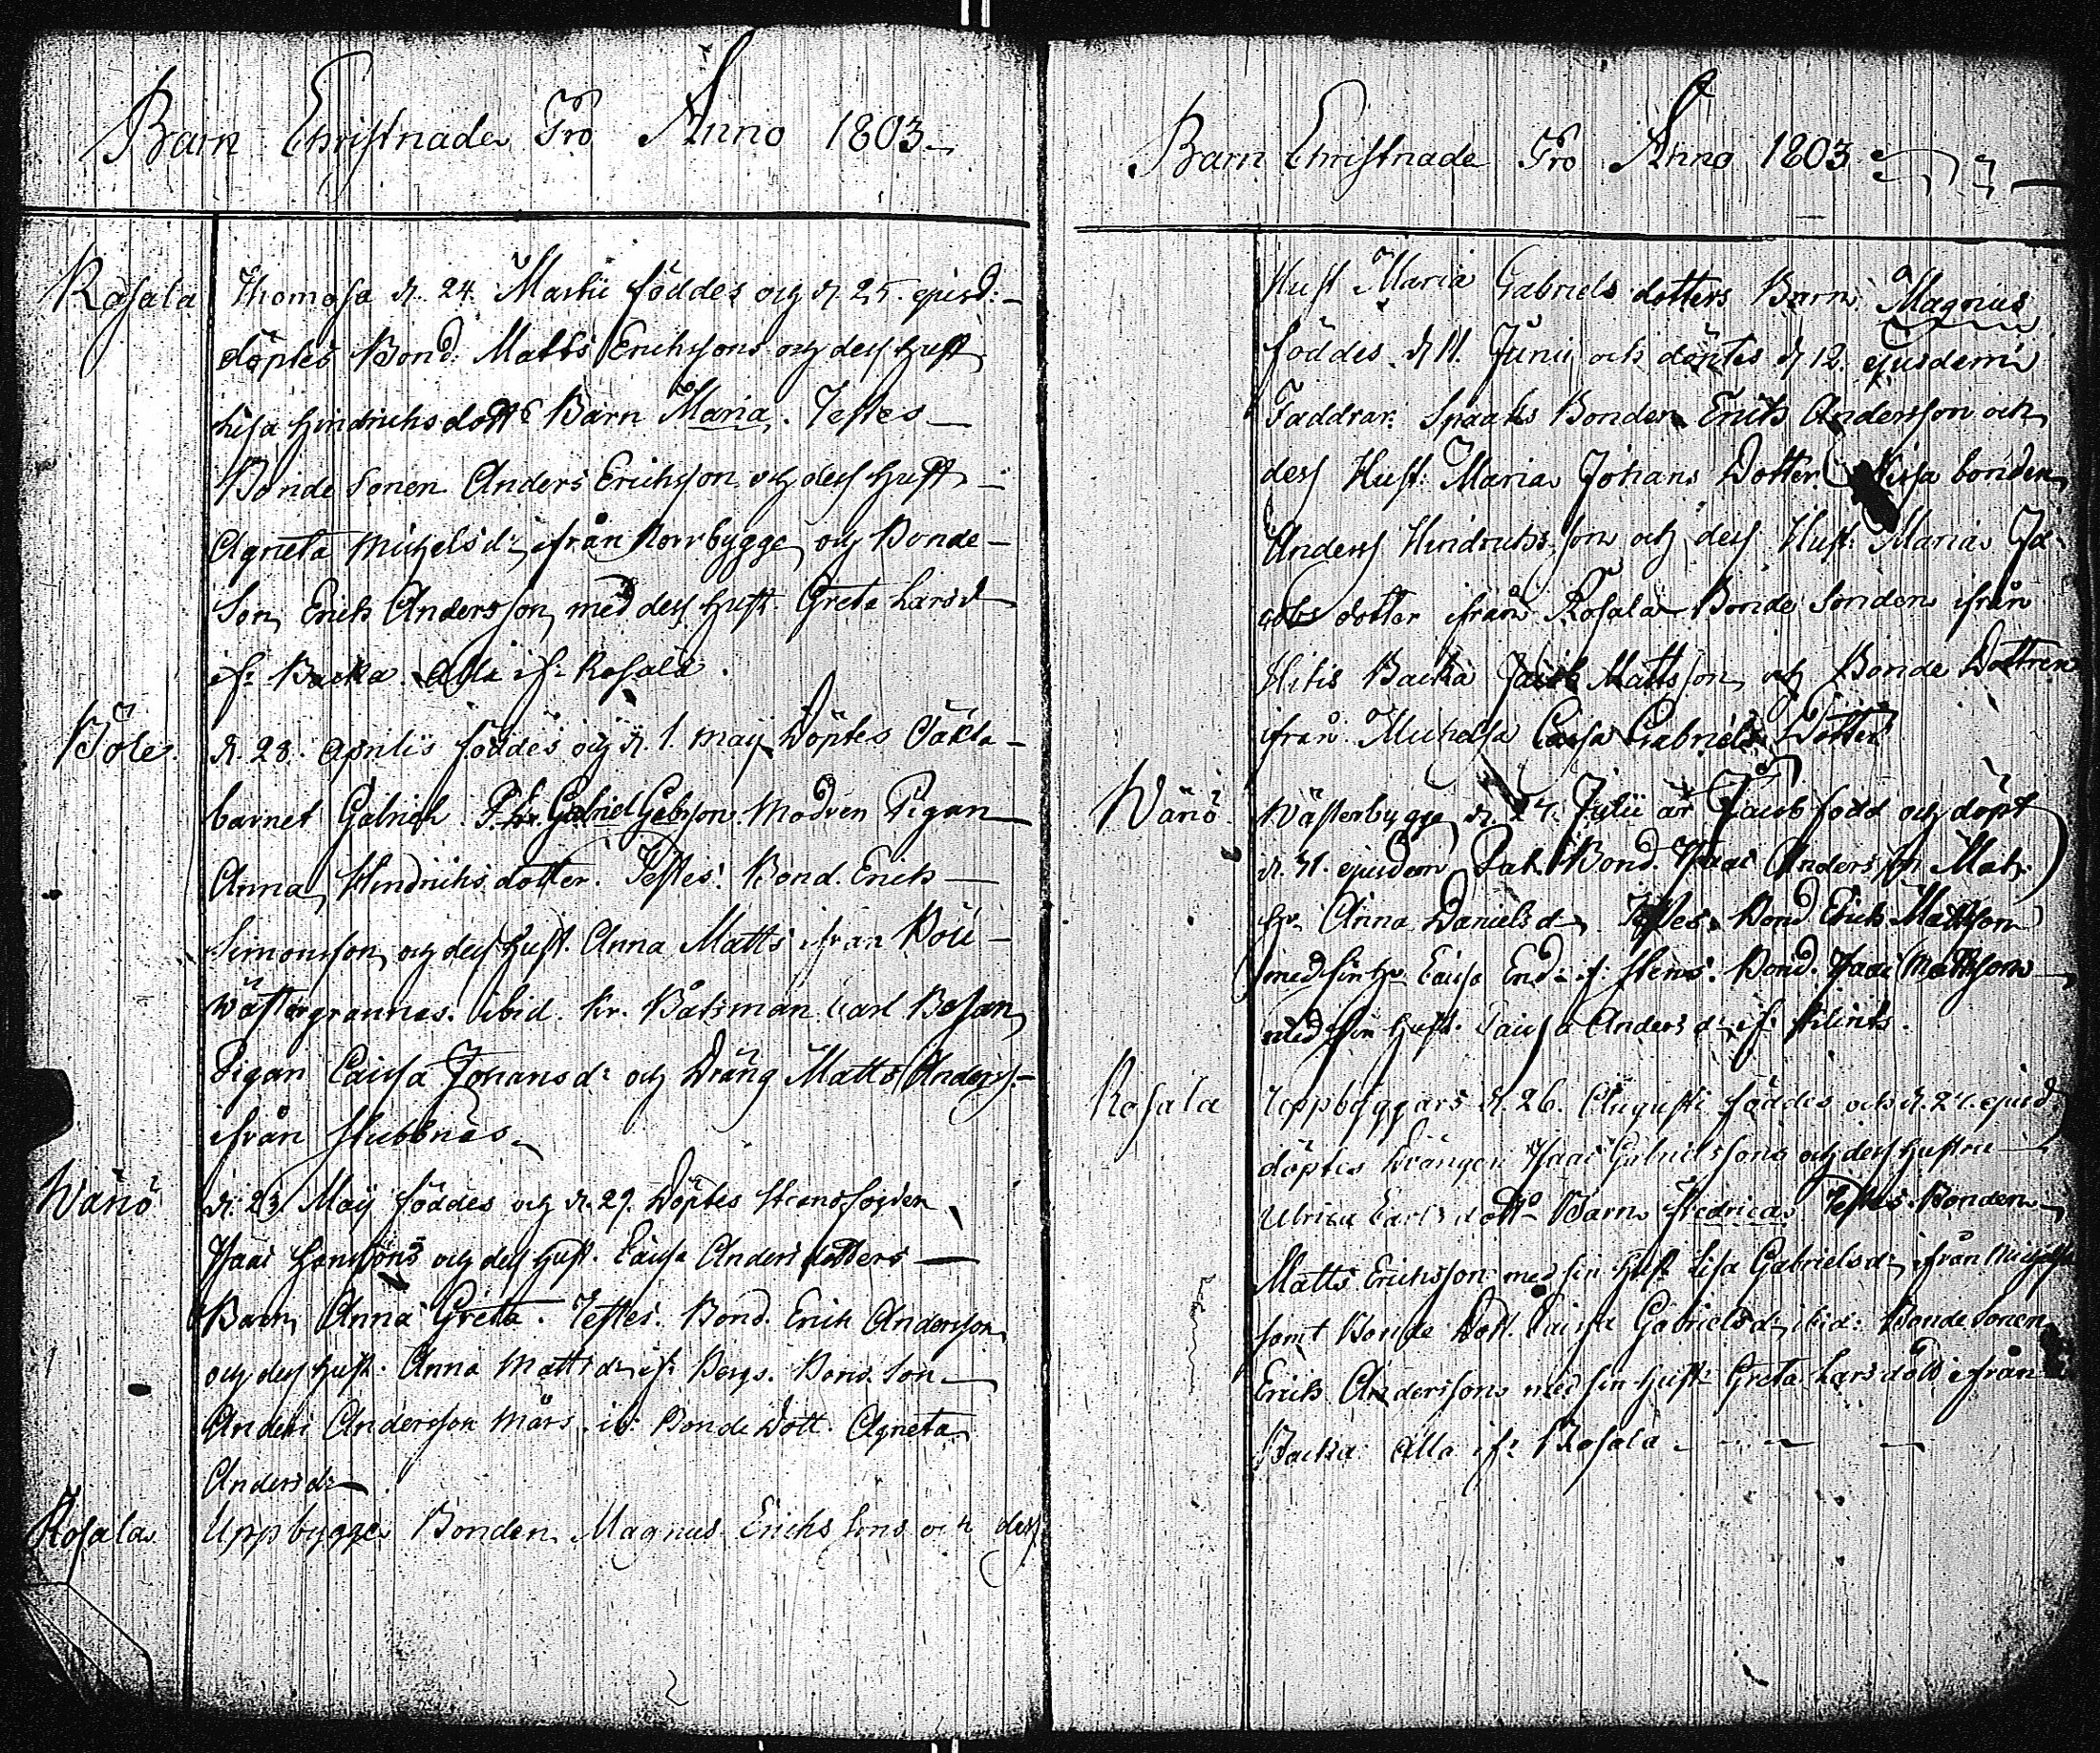 Barn Christnade Pro Anno 1803
Rosala Thomasa d. 24. Martii föddes och d. 25. ejusd:
döptes Bond: Matts Erichssons och dess Hust
Lisa Hindrichs dottrs Barn Maria. Testes
Bonde Sonen Anders Erichsson och dess Hust
Agneta Michelsd:r ifrån Norrbygge, och Bonde-
Son Erich Andersson med dess Hust. Greta Larsd
if: Backa. Alla if: Rosala.
Böle. d. 28. Aprilis föddes och d. 1. Maij Döptes Oäkta
barnet Gabriel Gabriel Gabrsson. Modren Pigan
Anna Hindrichs dotter. Testes: Bond. Erich
Simonsson och dess Hust. Anna Matts ifrån Böle
Wästergrannas. ibid. Kr. Båtsman Carl Bosan
Pigan Caisa Johansd:r och Dräng Matts Anderss:
ifrån Stubbnäs.
Wänö d. 23 Maij föddes och d. 29. Döptes
Isaac och dess Hust. Caisa Anders dotters
Barn Anna Greta. Testes: Bond. Erich Andersson
och dess Hust: Anna Mattsd:r if: Bergs. Bond. Son
Anders Andersson Mårs, ib: Bonde Dott. Agneta
Andersd:r
Rosala Uppbygge Bonden Magnus Erichs Sons och dess
Barn Christnade Pro Anno 1803
Hust Maria Gabriels dotters Barn Magnus
föddes d. 11. Junii och döptes d 12. ejusdem
Faddrar: Spaaks Bonden Erich Andersson och
dess Hust: Maria Johans Dotter. Nissa bonden
Anders Hindrichsson och dess Hust: Maria Ja-
cobs dotter ifrån Rosala Bonde Sonden ifrån
Hitis Backa Jacob Mattsson och Bonde Dottren
ifrån Michelsa Caisa Gabriels Dotter
Wänö Wästerbygge d. 27. Julii är Jacob född och döpt
d. 31. ejusdem Pat. Bond. Isaac Andersson Mat.
hr. Anna Danielsd:r Testes. Bond Erich Mattsson
med sin h. Caisa if: Stens. Bond. Isaac Mattsson
med sin Hust. Caisa Andersd:r if: Klints.
Rosala Uppbyggars d. 26. Augusti föddes och d. 27. ejusd
döptes Drängen Isaac Gabrielssons och dess Hustru
Ulrica Carls dottrs Barn Fredrica. Testes. Bonden
Matts Erichsson med sin Hust Lisa Gabrielsd:r ifrån Michelsa
samt Bonde Dott. Caisa Gabrielsd:r ibid: Bonde Sonen
Erich Anderssons med sin Hust: Greta Lars dott ifrån
Backa Alla if: Rosala